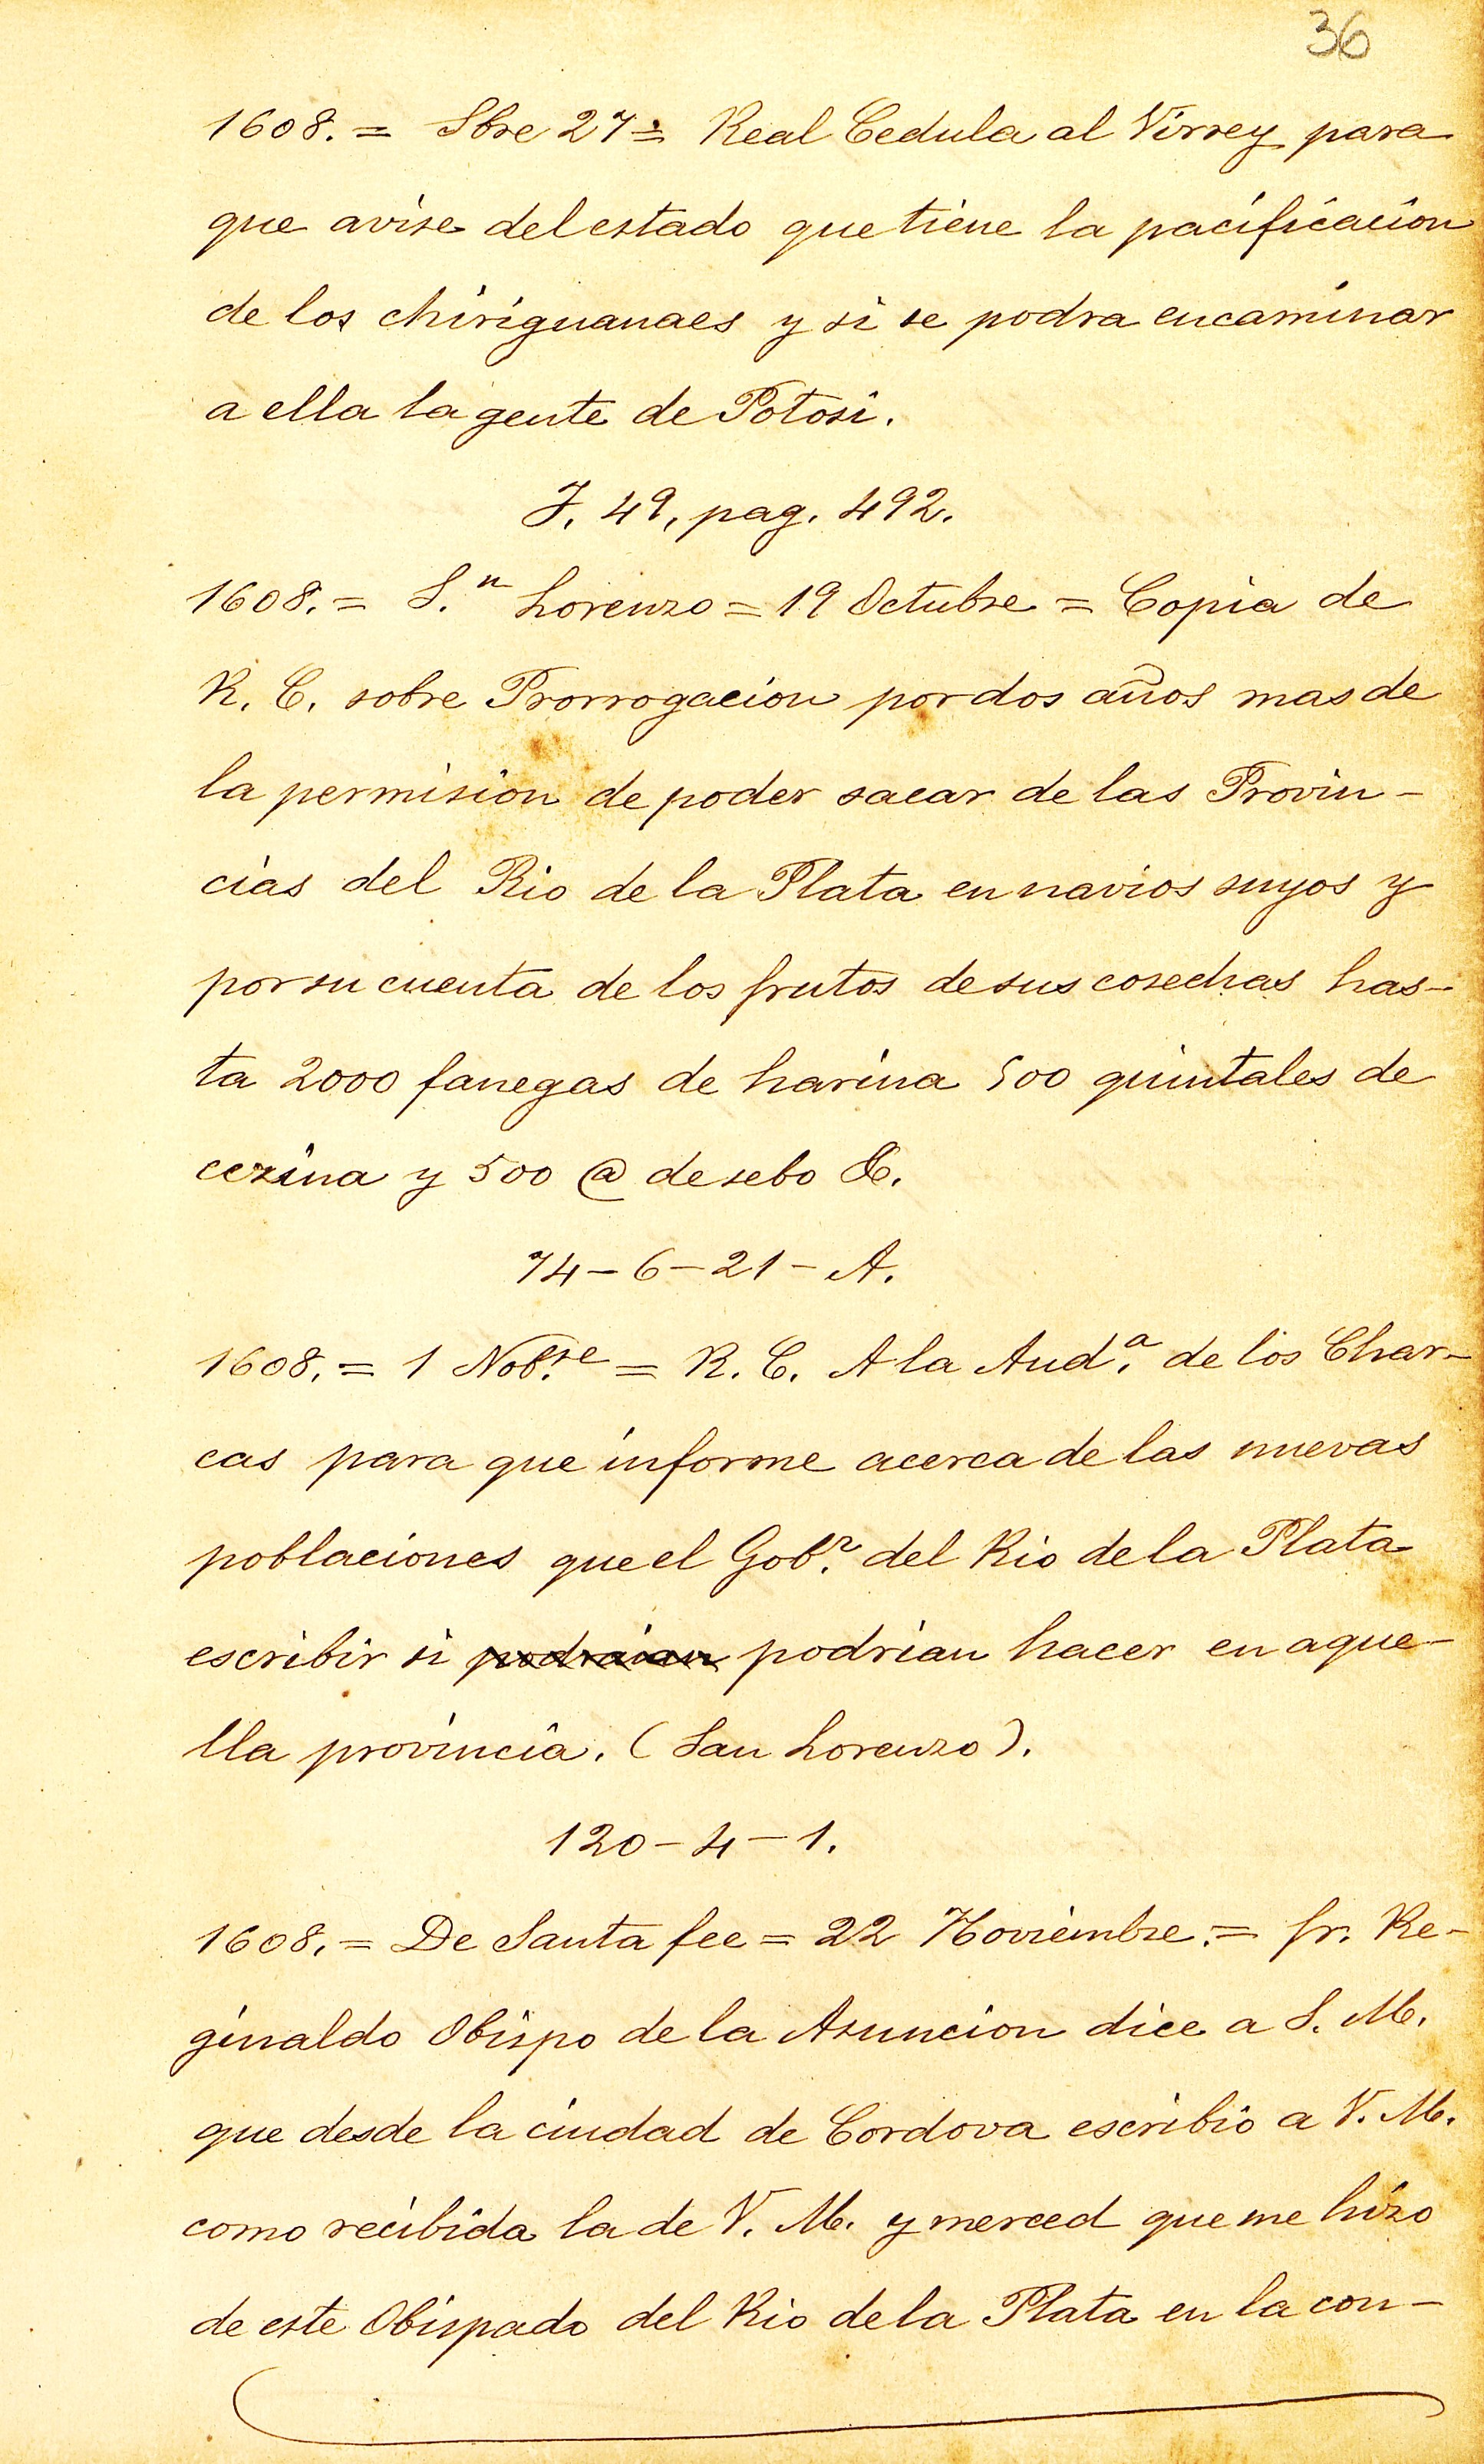 36
1608. = Sbre 27 = Real Cedula al Virrey para
que avise del estado que tiene la pacificacion
de los chiriguanaes y si se podra encaminar
a ella la gente de Potosi.
J. 49, pag. 492.
1608. = S.n Lorenzo = 19 Octubre = Copia de
R. C. sobre Prorrogacion por dos años mas de
la permision de poder sacar de las Provin-
cias del Rio de la Plata en navios suyos y
por su cuenta de los frutos de sus cosechas has-
ta 2000 fanegas de harina 500 quintales de
cezina y 500 @ de sebo &.
74-6-21-A.
1608. = 1 Nob.re = R. C. A la Aud.a de los Char-
cas para que informe acerca de las nuevas
poblaciones que el Gob.r del Rio de la Plata
escribir si podrian hacer en aque-
lla provincia. (San Lorenzo).
120-4-1.
1608. = De Santa fee = 22 Noviembre. = fr. Re-
ginaldo Obispo de la Asuncion dice a S. M.
que desde la ciudad de Cordova escribio a V. M.
como recibida la de V. M. y merced que me hizo
de este Obispado del Rio de la Plata en la con-